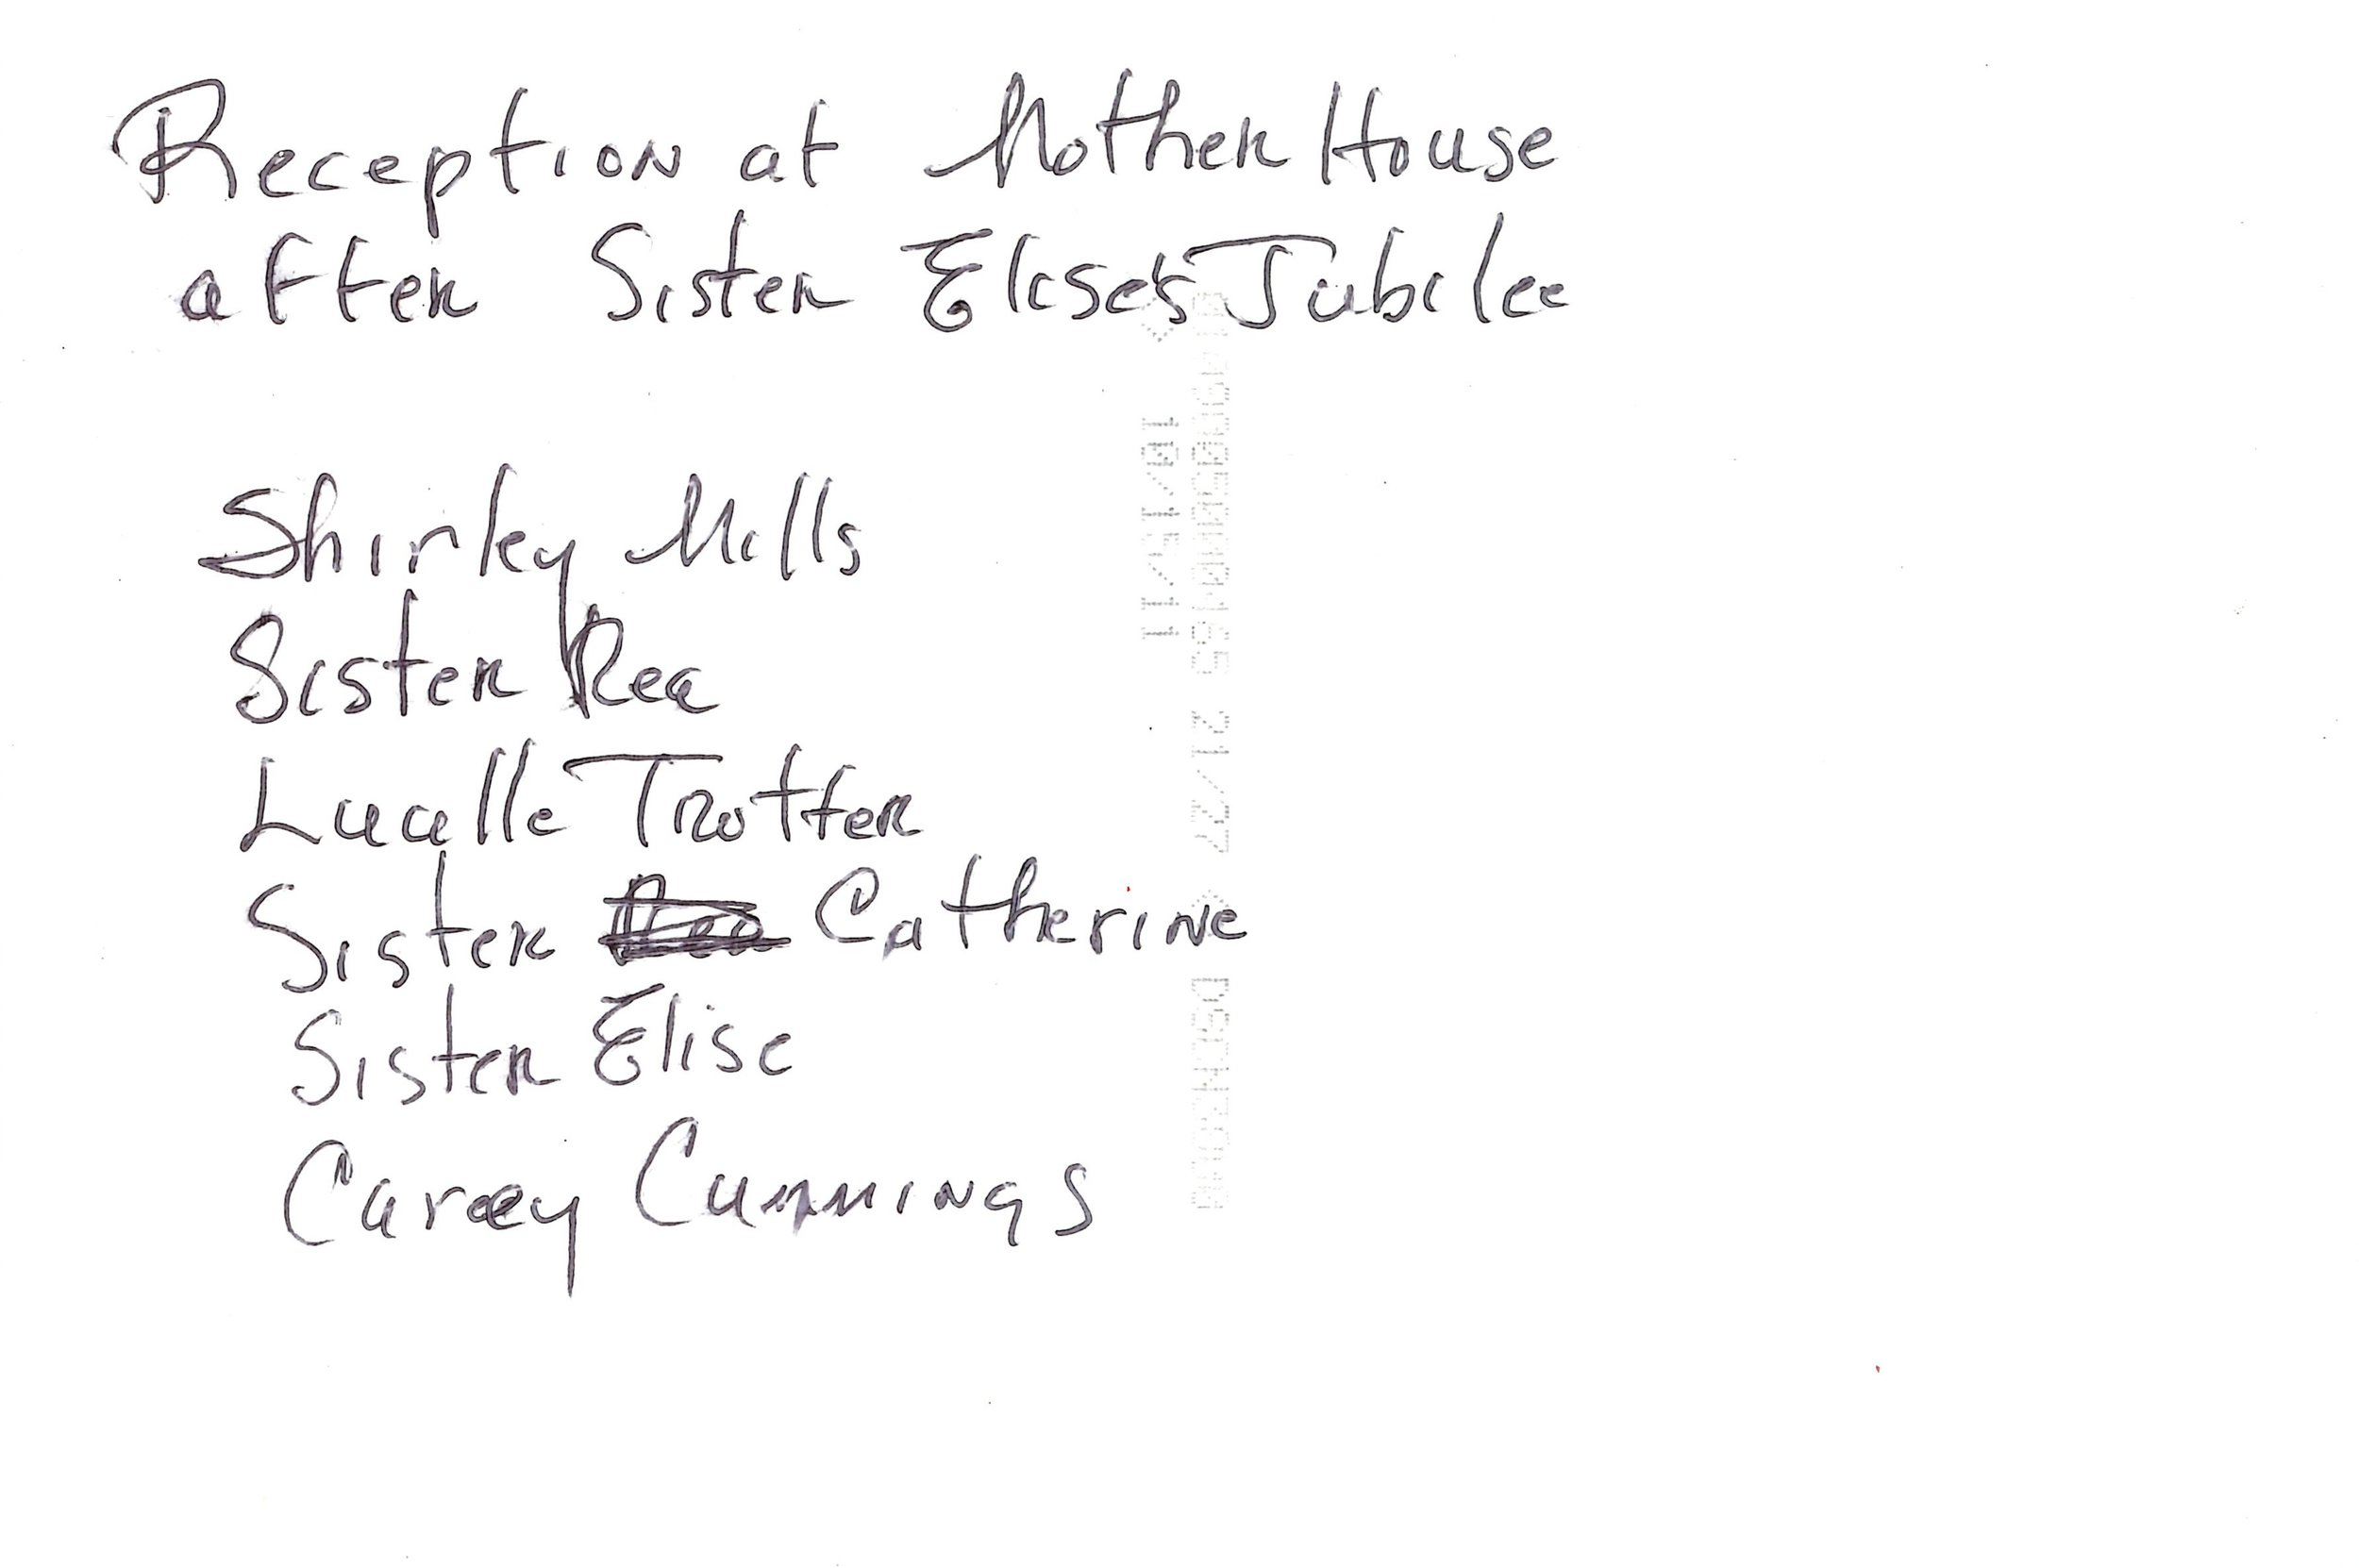 Reception at Mother House
after Sister Elise's Jubilee
Shirley Mills
Sister Rea
Lucille Trotter
Sister Catherine
Sister Elise
Carey Cummings
10/15/11
21/27